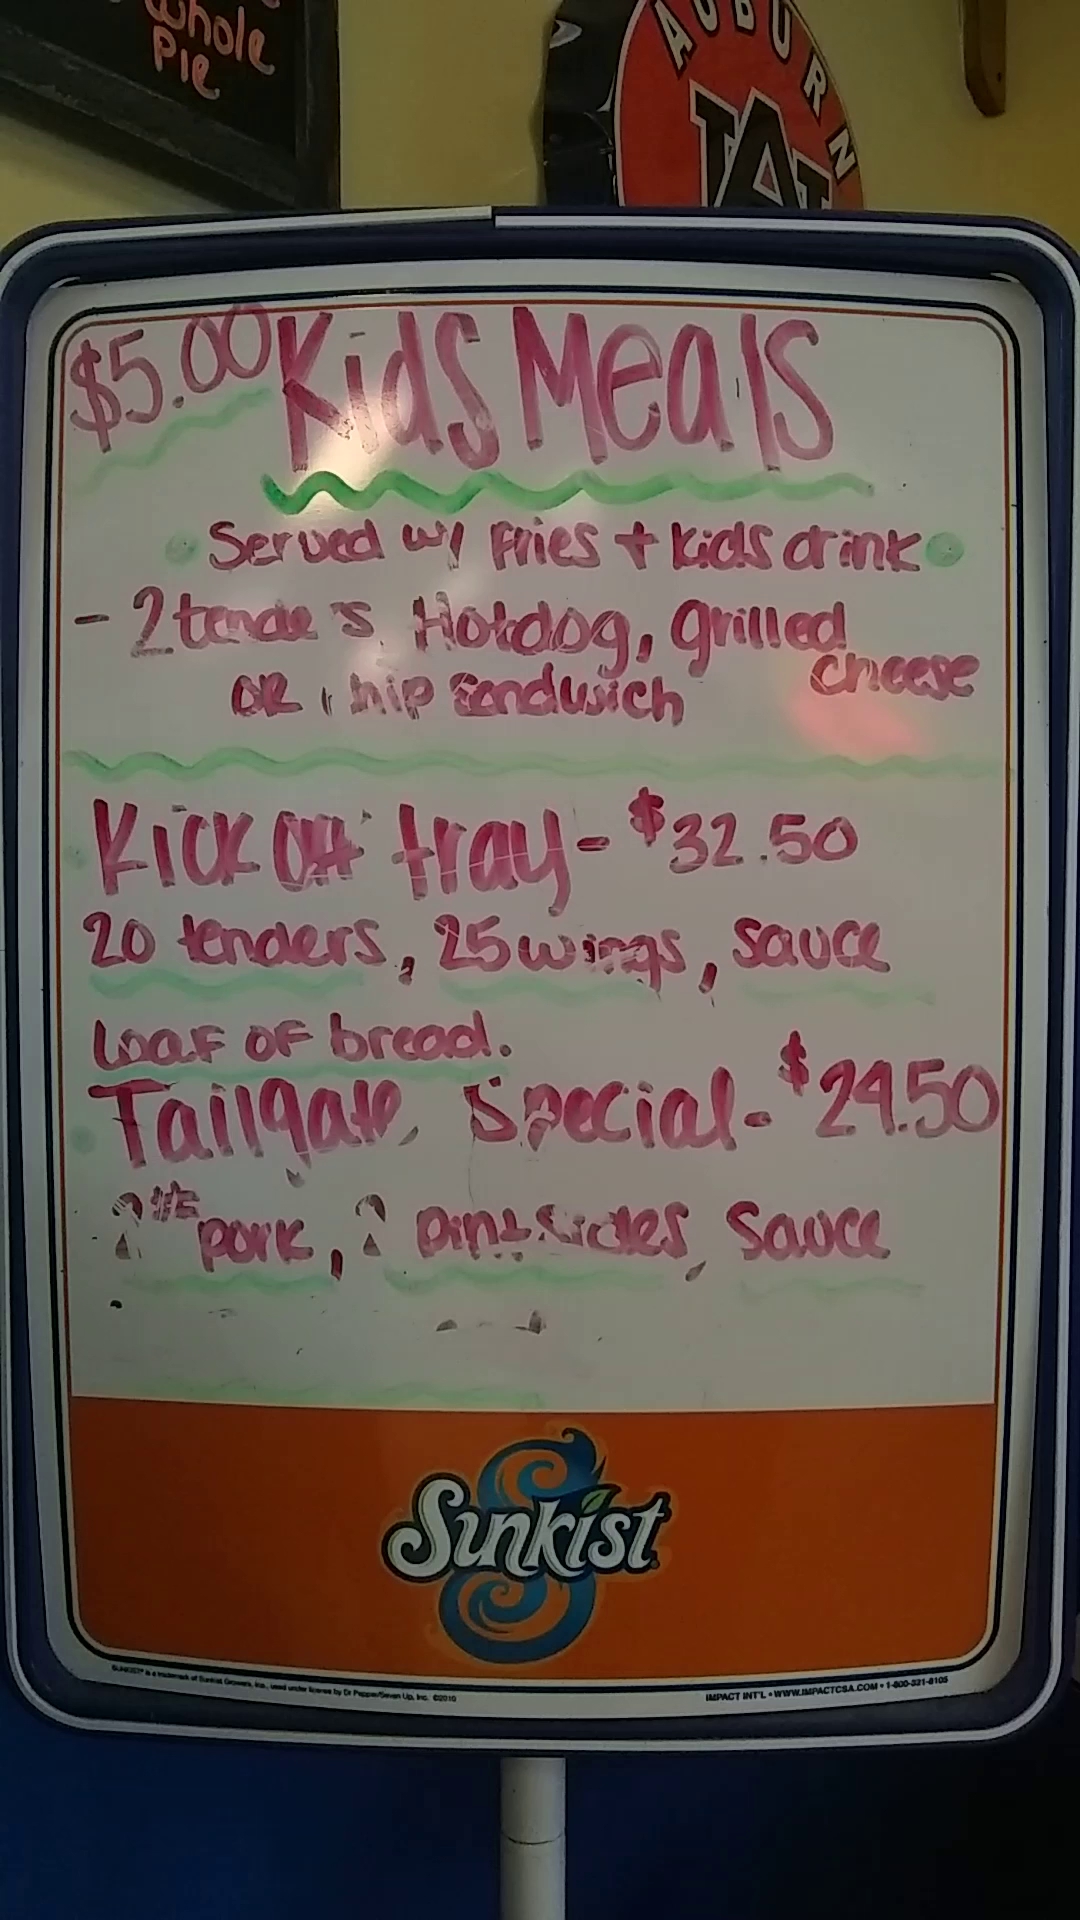 Whole
Pie
AUBURN
AU
$5.00 Kids Meals
Served w/ Fries + kids drink
- 2 tenders, Hotdog, grilled
cheese
OR chip sandwich
Kick Off tray - $32.50
20 tenders, 25 wings, sauce
Loaf of bread.
Tailgate Special - $24.50
pork, pint sides, sauce
Sunkist
SUNKIST® is a trademark of Sunkist Growers, Inc., used under license by Dr Pepper/Seven Up, Inc. ©2010
IMPACT INT'L • WWW.IMPACTCSA.COM • 1-800-321-8105